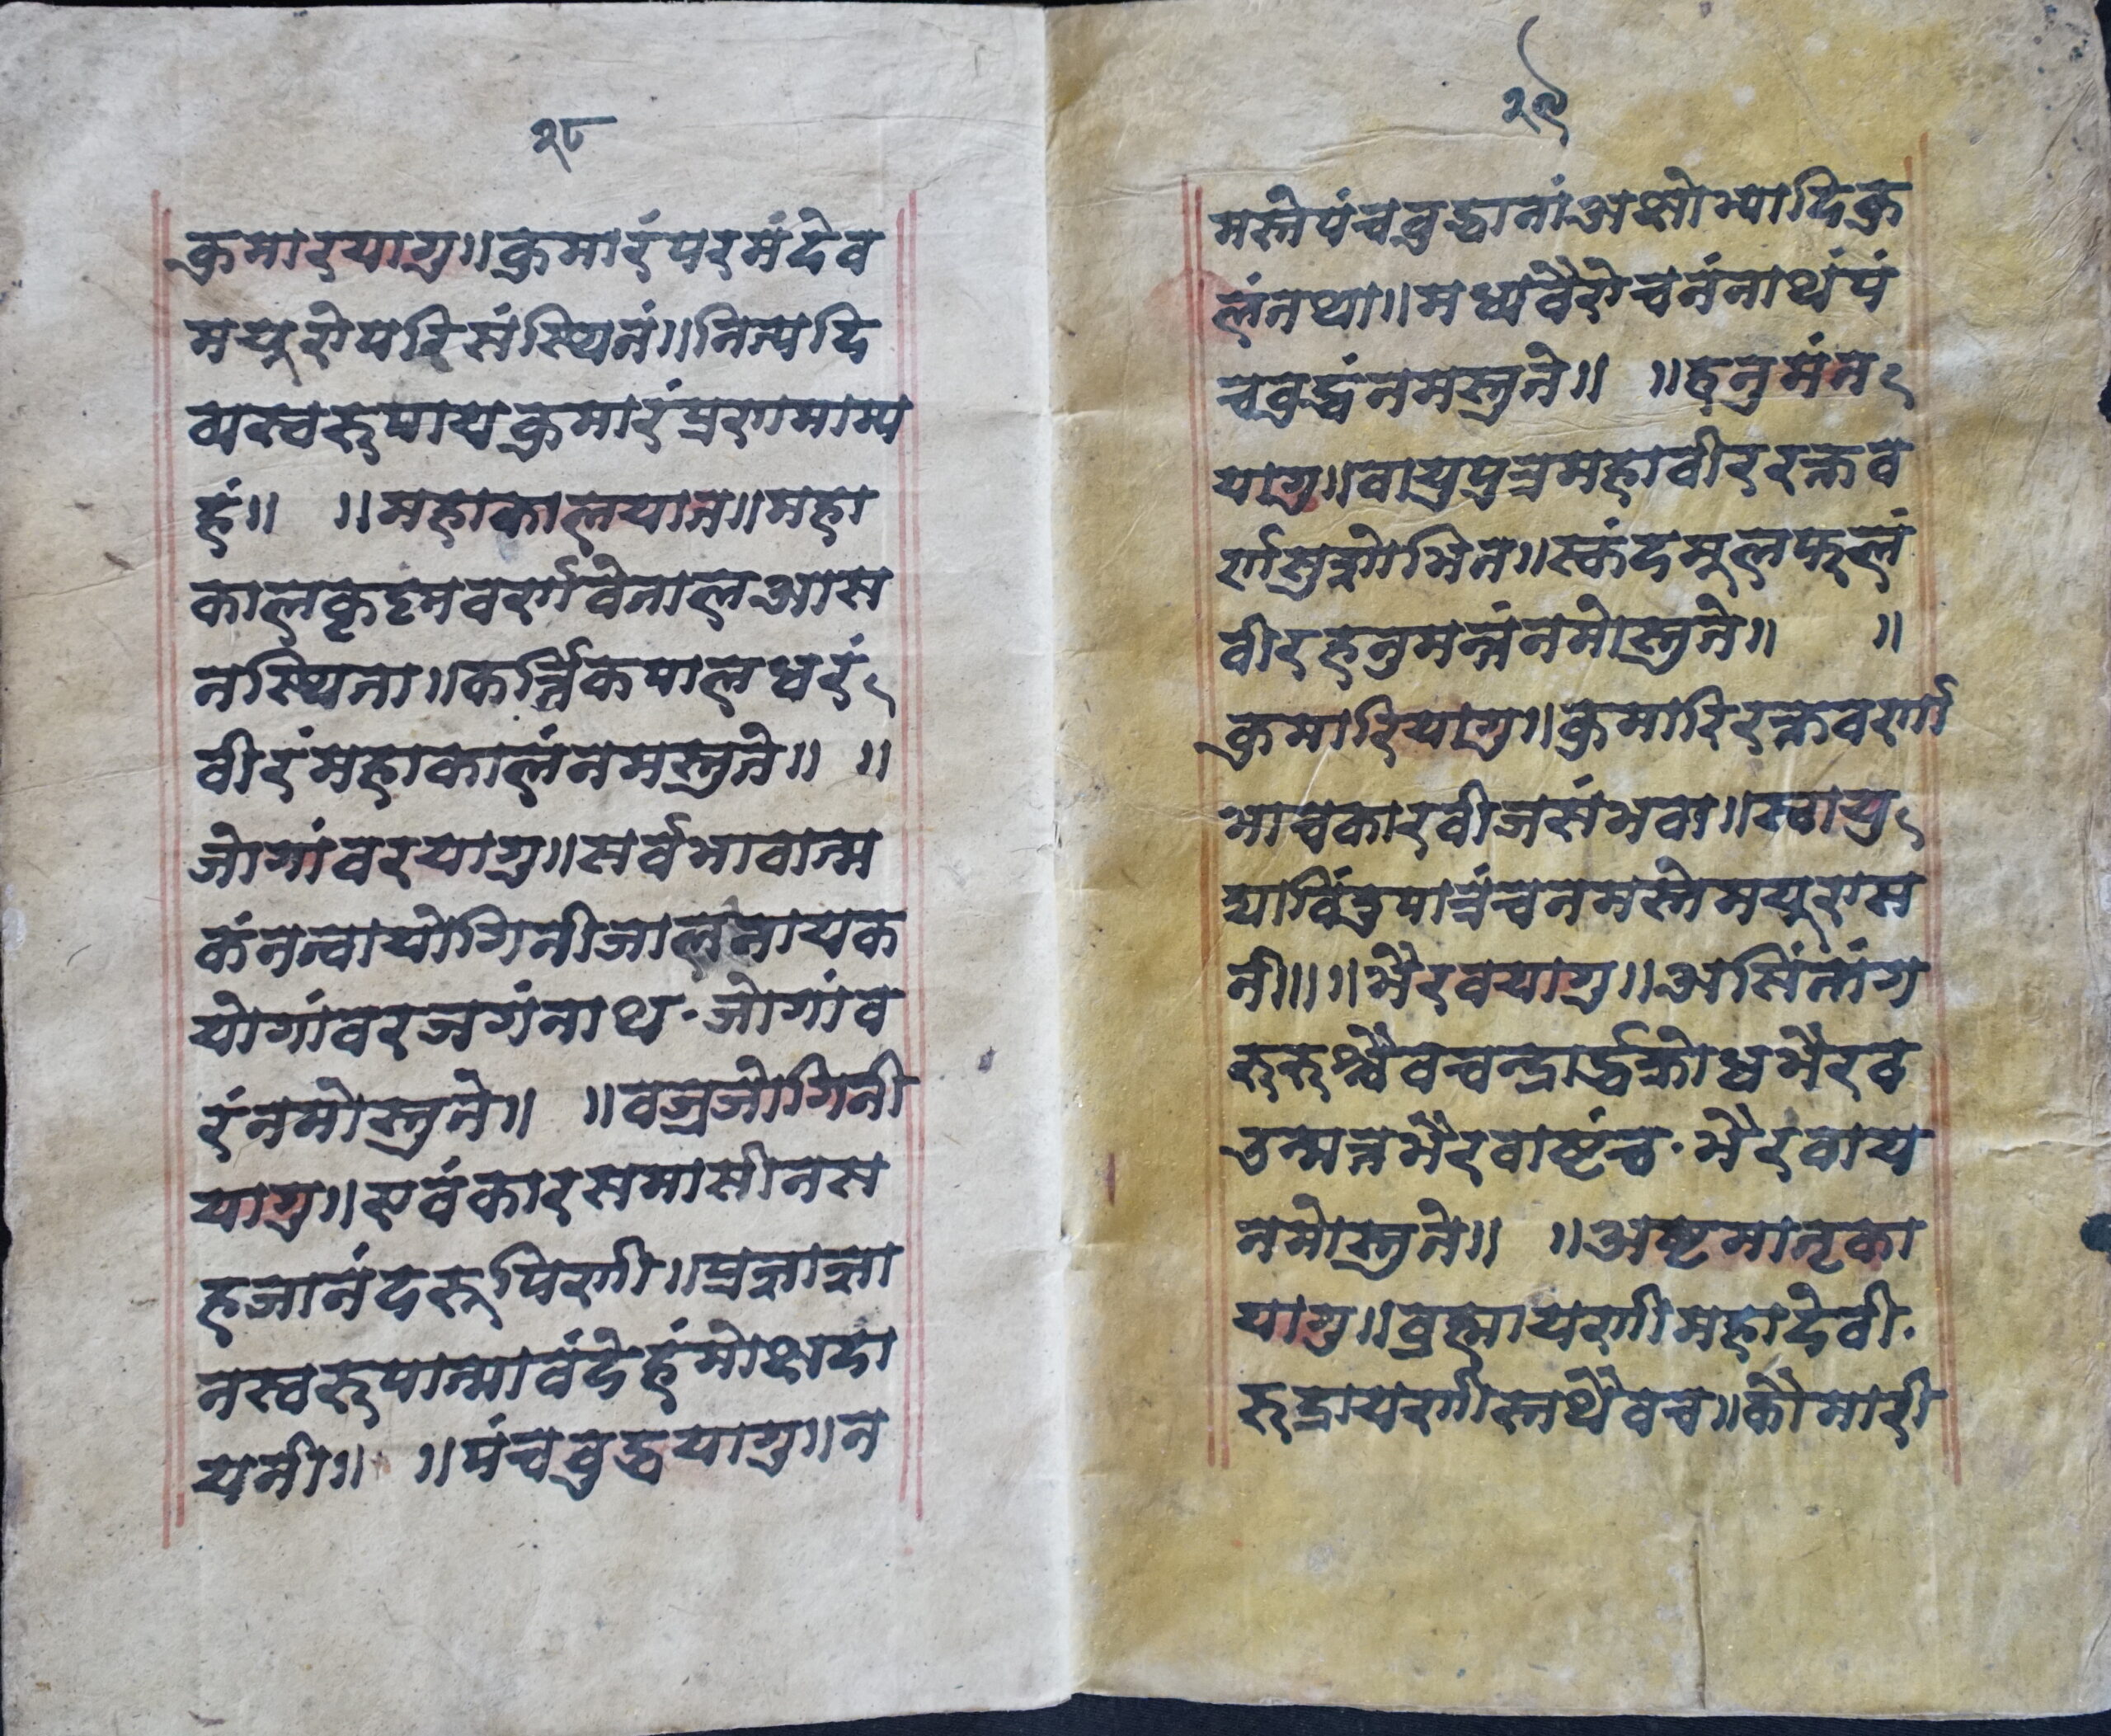 २८
कुमारयागु॥कुमारंपरमंदेव
मयुरोपरिसंस्थितं॥नित्यदि
व्यस्वरूपायकुमारंप्रणमाम्य
हं॥ ॥महाकालयात॥महा
कालकृह्मवर्णवेतालआस
नस्थिता॥कर्त्तिकपालधरं
वीरंमहाकालंनमस्तुते॥ ॥
जोगांवरयागु॥सर्वभावात्म
कंनत्वायोगिनीजालनायक
योगांवरजगंनाथ·जोगांव
रंनमोस्तुते॥ ॥वज्रजोगिनी
यागु॥एवंकारसमासीनस
हजानंदरूपिणी॥प्रज्ञाज्ञा
नस्वरूपात्मावंदेहंमोक्षदा
यनी॥ ॥पंचबुद्धयागु॥न
२९
मस्तेपंचबुद्धानांअक्षोभ्यादिकु
लंतथा॥मध्यवैरोचनंनाथंपं
चबुद्धंनमस्तुते॥ ॥हनुमंत
यागु॥वायुपुत्रमहावीररक्तव
र्णसुशोभित॥स्कंदमूलफलं
वीरहनुमन्तंनमोस्तुते॥ ॥
कुमारियागु॥कुमारिरक्तवर्णा
भाचकारवीजसंभवा॥खायु
धाविंदुपात्रंचनमस्तेमयुरास
नी॥॥भैरवयागु॥असिंतांग
रुरुश्चैवचन्द्रार्द्धक्रोधभैरव
उन्मत्तभैरवाष्टंच·भैरवाय
नमोस्तुते॥ ॥अष्टमातृका
यागु॥ब्रह्मायणीमहादेवी·
रुद्रायणीस्तथैवच॥कौमारी